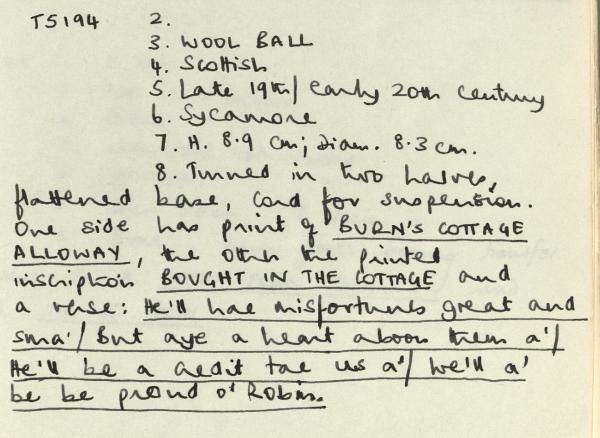 T5194 2.
3. WOOL BALL
4. Scottish
5. Late 19th/early 20th century
6. Sycamore
7. H. 8.9 cm; Diam. 8.3 cm.
8. Turned in two halves,
flattened base, cord for suspension.
One side has print of BURN'S COTTAGE
ALLOWAY, the other the printed
inscription BOUGHT IN THE COTTAGE and
a verse: He'll hae misfortunes great and
sma'/ But aye a heart aboon them a'/
He'll be a credit tae us a'/ We'll a'
be be proud o' Robin.